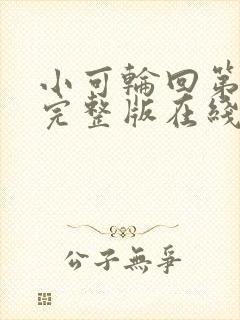 小可輪回第
完整版在綫
公子無爭